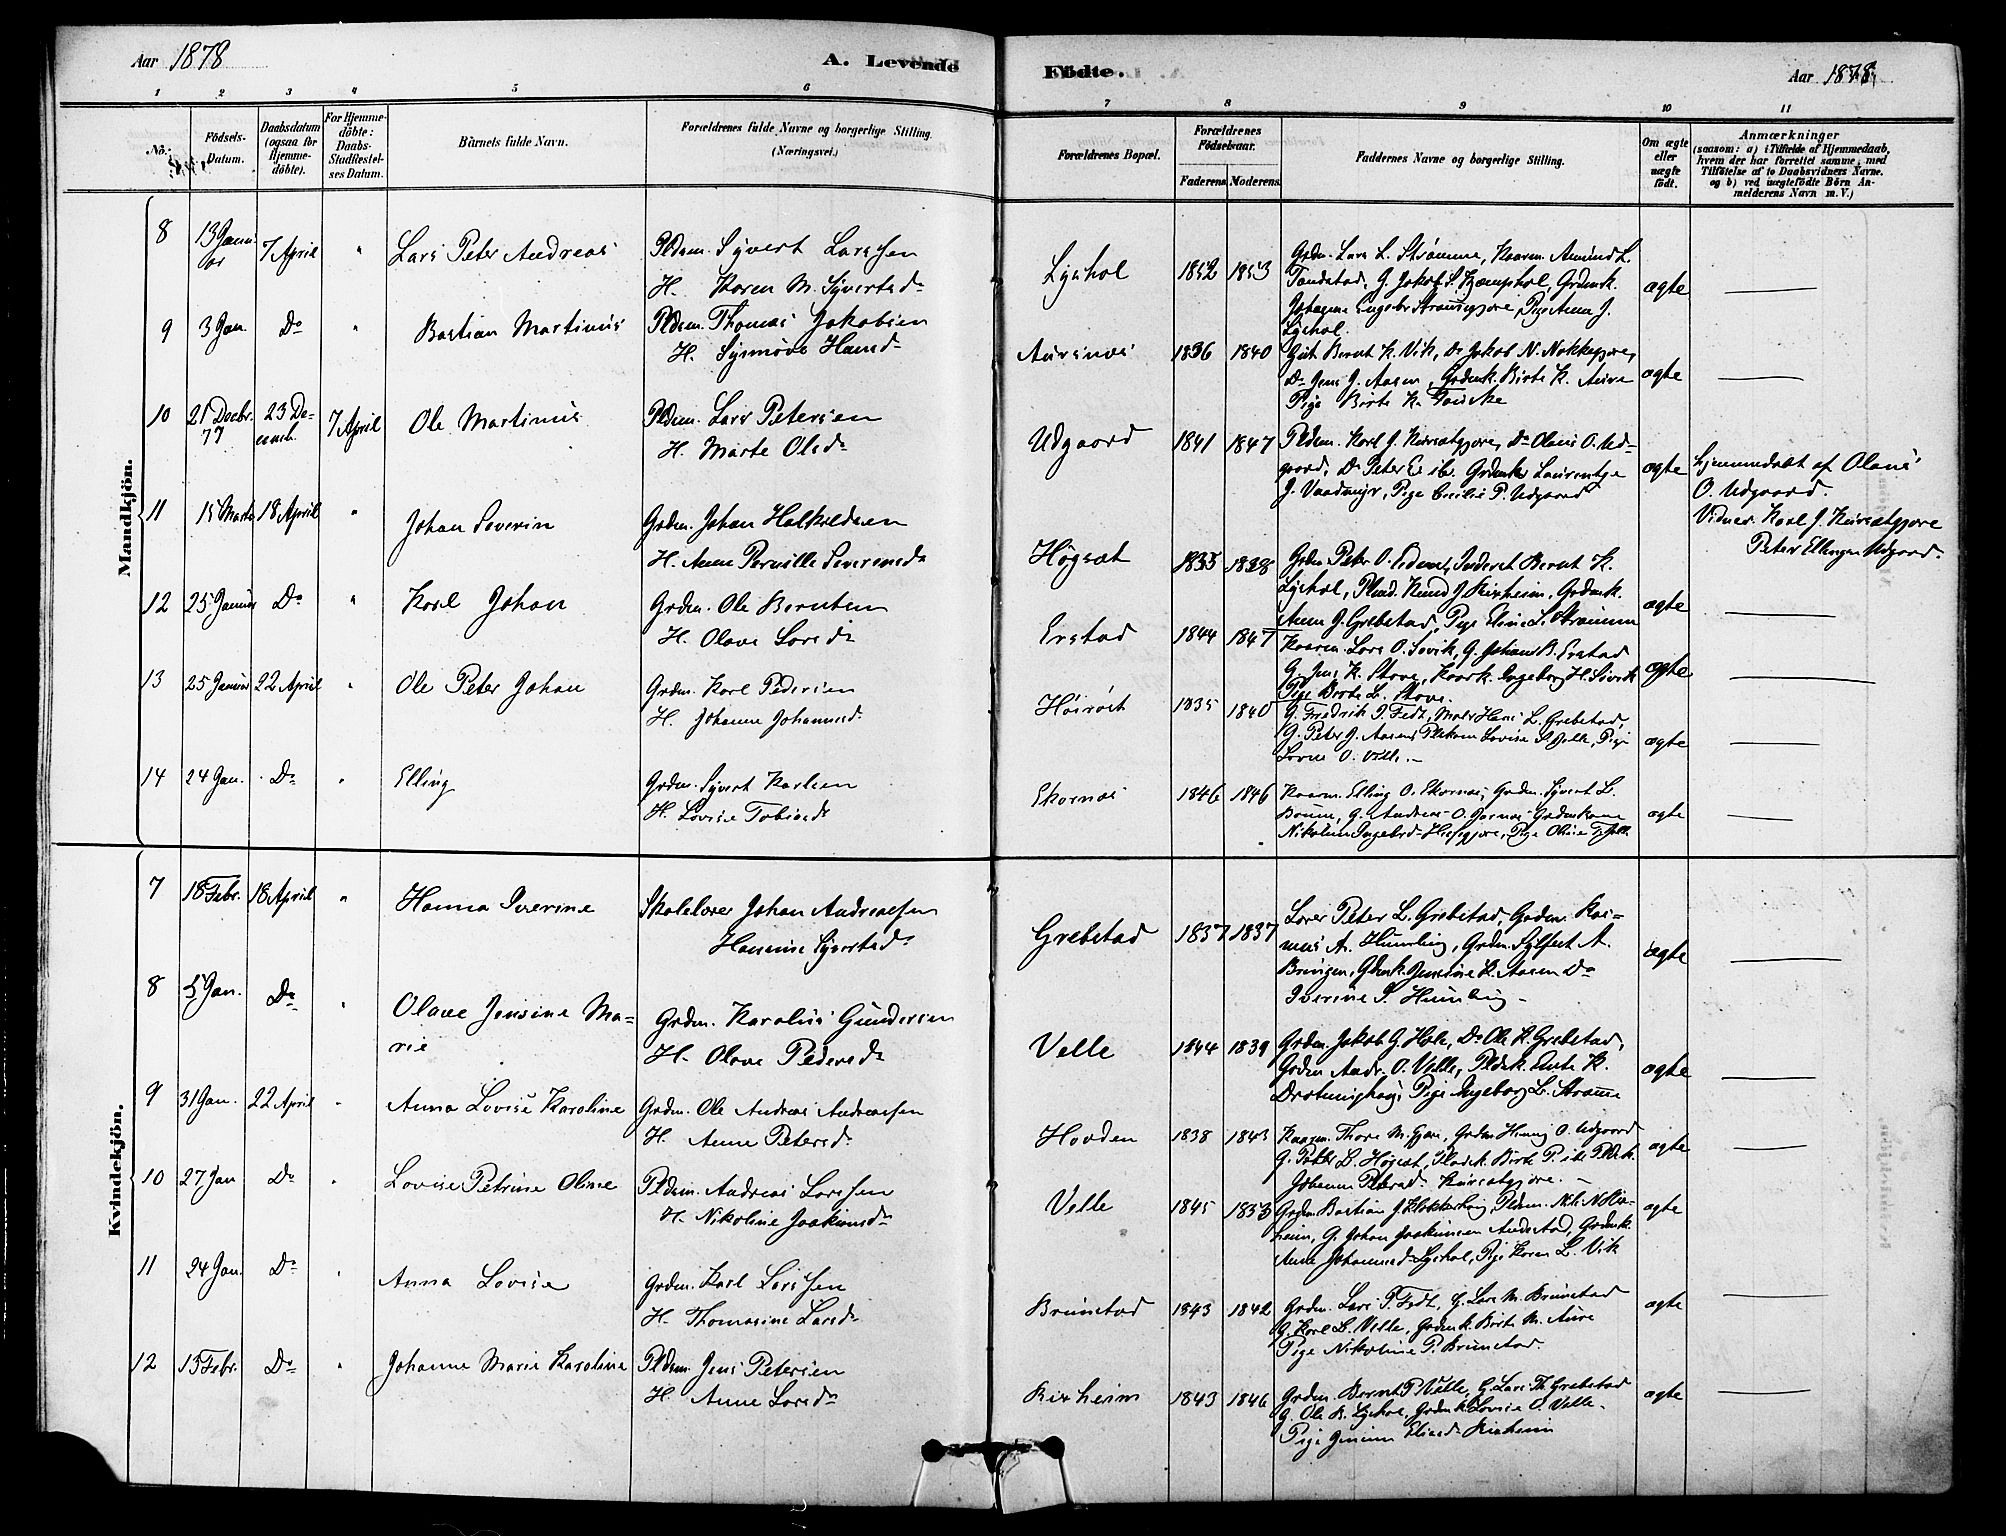 Aar 1878
A. Levende Födte.
Aar 1878
1 2 3 4 5 6 7 8 9 10 11
No. Födsels-Datum. Daabsdatum (ogsaa for Hjemme-döbte). For Hjemme-döbte: Daabs-Stadfæstel-ses Datum. Barnets fulde Navn. Forældrenes fulde Navne og borgerlige Stilling. (Næringsvei.)
Forældrenes Bopæl. Forældrenes Födselsaar. Faderens Moderens. Faddernes Navne og borgerlige Stilling. Om ægte eller uægte födt. Anmærkninger
(saasom: a) i Tilfælde af Hjemmedaab,
hvem der har forrettet samme, med
Tilföielse af to Daabsvidners Navne.
og b) ved uægtefödte Börn An-
melderens Navn m. V.)
Mandkjön.
8 13 Janu- 7 April " Lars Peter Andreas Pldsm. Syvert Larssen
ar H. Karen M. Syvertsd.
Lyshol 1852 1853 Grdm. Lars L. Strømme, Kaarm. Amund L.
Tandstad, G. Jakob S. Kjæmphol, Grdmk.
ægte
Lyshol.
9 3 Jan. Do " Bastian Martinus Pldsm. Thomas Jakobsen
H. Synnøve Hansd.
Aursnes 1836 1840 Gut Bernt K. Vik, Do Jakob N. Nakkegjøre,
Do Jens J. Aasen, Grdmk. Birte K. Aure
Pige Birte K.
ægte
10 21 Decbr. 77 23 De-cemb. 7 April Ole Martinus Pldsm. Lars Petersen
H. Marte Olsd.
Udgaard 1841 1847 Pldsm. Karl J. Kursætgjøre, Do Olaus O. Ud-
gaard, Do Peter E. ib. Grdmk. Laurentze
J. Vaadmyr, Pige Cecilie P. Udgaard
ægte
hjemmedøbt af Olaus
O. Udgaard.
Vidner. Karl J. Kursætgjøre
Peter Ellingsen Udgaard.
11 15 Marts 18 April " Johan Severin Grdm. Johan Halkildsen
H. Anne Pernille Severinsd.
Høgsæt 1835 1838 Grdm. Peter O. Inderst Bernt K.
Lyshol, Pldsmd. Knud J. Rixheim, Grdmk.
Anne J. Grebstad, Pige Eline L. Strømme
ægte
12 25 Januar Do " Karl Johan Grdm. Ole Berntsen
H. Olave Larsd.
Erstad 1844 1847 Kaarm. Lars O. Søvik, G. Johan B. Erstad
G. Jens K. Stave, Kaark. Ingeborg H. Søvik
Pige Birte L. Stave.
ægte
13 25 Januar 22 April " Ole Peter Johan Grdm. Karl Pedersen
H. Johanne Johannesd.
1835 1840 G. Fredrik P. Fedt, Maler Hans L. Grebstad,
G. Peter J. Aasen, Lovise Velle, Pige
Lovise O. Velle.
ægte
14 24 Jan. Do " Elling Grdm. Syvert Karlsen
H. Lovise Tobiasd.
Ekornes 1846 1846 Kaarm. Elling O. Ekornes, Grdm. Syvert L.
Brune, G. Andreas O. Grdmkone
Nikoline Ingebrd. Pige Oline
ægte
Kvindekjön.
7 18 Febr. 18 April " Hanna Iverine Skolelærer Johan Andreassen
Hansine Syvertsd.
Grebstad 1837 1837 Lærer Peter L. Grebstad, Grdm. Ras-
mus A. Humling, Grdm. Sylfest A.
Bringen, Gdmk. Jensine K. Aasen Do
Iverine P. Humling
ægte
8 5 Jan. Do " Olave Jensine Ma-
rie
Grdm. Karolius Gundersen
H. Olave Pedersd.
Velle 1844 1839 Grdm. Jakob G. Hole, Do Ole K. Grebstad,
Grdm Andr. O. Velle, Pldsk. Ante K.
Drotninghaug Pige Ingeborg L. Strømme
ægte
9 31 Jan. 22 April " Anna Lovise Karoline Grdm. Ole Andreas Andreassen
H. Anne Petersd.
Hovden 1838 1843 Kaarm. Thore M. Gjære, Grdm Henning O. Udgaard
G. Petter L. Høgsæt, Pladsk. Birte P. ibe Pldsk.
Johanne Petersd. Kursætgjøre.
ægte
10 27 Jan Do " Lovise Petrine Oline Pldsm. Andreas Larssen
H. Nikoline Joakimsd.
Velle 1845 1853 Grdm. Bastian J. Klokkerhaug, Pldsm. Nils N. Rix-
heim, G. Johan Joakimsen Andestad, Grdmk.
Anne Johannesd. Lyshol, Pige Karen L. Vik
ægte
11 24 Jan. Do " Anna Lovise Grdm. Karl Larssen
H. Thomasine Larsd.
Brunstad 1843 1842 Grdm. Lars P. Fedt, G. Lars M. Brunstad
G. Karl L. Velle, Grdmk. Birte M. Aure
Pige Nikoline P. Brunstad.
ægte
12 15 Febr. Do " Johanne Marie Karoline Pldsm. Jens Petersen
H. Anne Larsd.
Rixheim 1843 1846 Grdm. Bernt P. Velle, G. Lars Th. Grebstad
G. Ole B. Lyshol, Grdmk. Lovise O. Velle.
Pige Jensine Eliasd. Rixheim
ægte